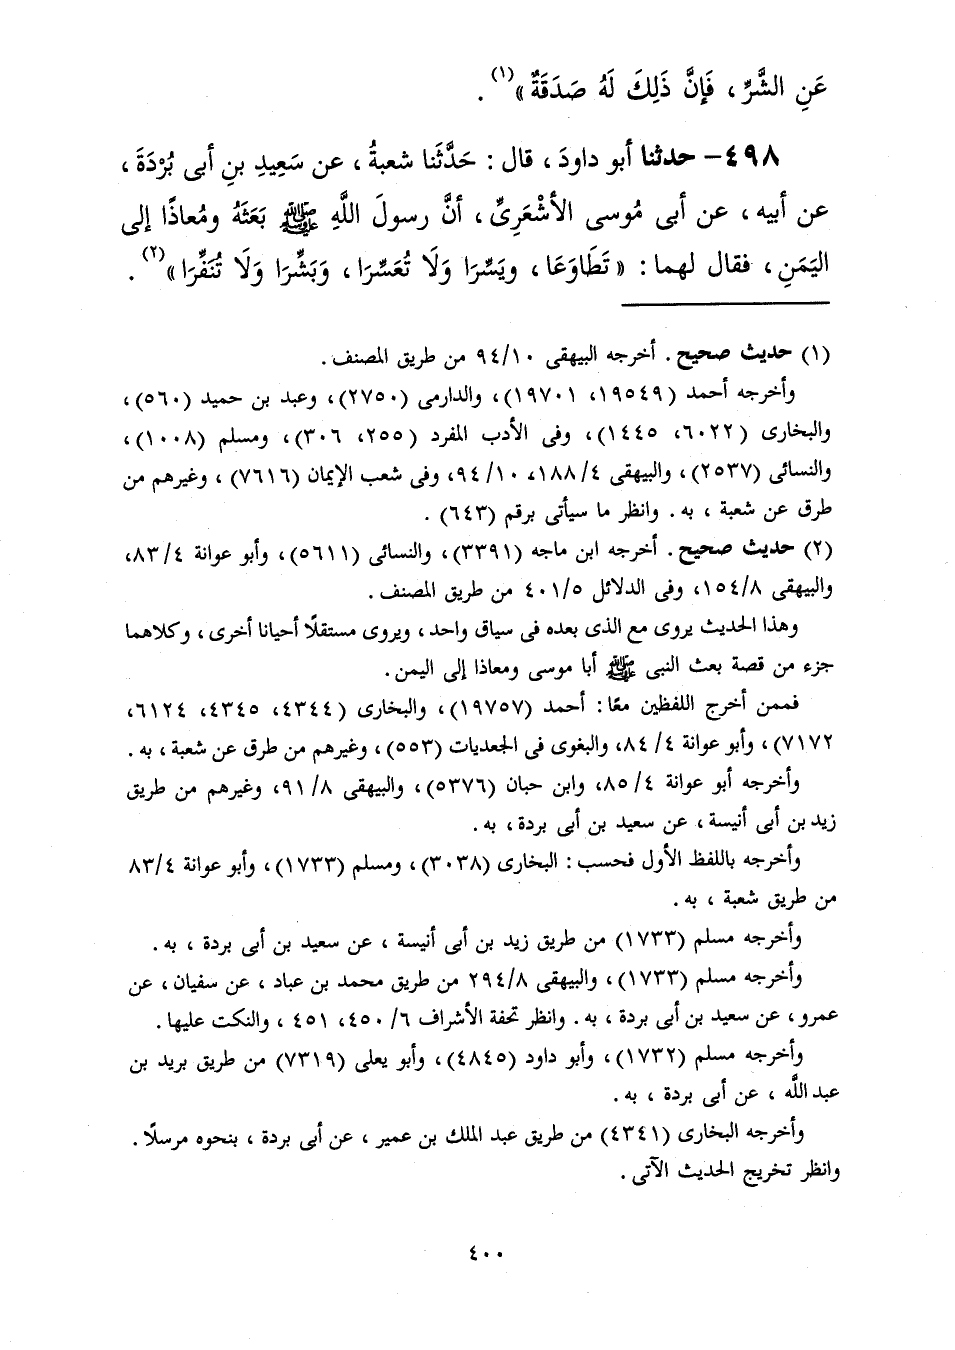 عَنِ الشَّرِّ ، فَإِنَّ ذَلِكَ لَهُ صَدَقَةٌ »(١) .
٤٩٨- حدثنا أبو داودَ ، قال : حَدَّثَنا شعبةُ ، عن سَعِيدِ بنِ أبى بُرْدَةَ ،
عن أبيه ، عن أبى مُوسى الأشْعَرِىِّ ، أنَّ رسولَ اللَّهِ ﷺ بَعَثَهُ ومُعاذًا إلى
اليَمَنِ ، فقال لهما : « تَطَاوَعَا ، ويَسِّرَا وَلَا تُعَسِّرَا ، وَبَشِّرَا وَلَا تُنَفِّرَا »(٢) .
(١) حديث صحيح . أخرجه البيهقى ٩٤/١٠ من طريق المصنف .
وأخرجه أحمد (١٩٥٤٩، ١٩٧٠١)، والدارمى (٢٧٥٠)، وعبد بن حميد (٥٦٠)،
والبخارى (٦٠٢٢، ١٤٤٥)، وفى الأدب المفرد (٢٥٥، ٣٠٦)، ومسلم (١٠٠٨)،
والنسائى (٢٥٣٧)، والبيهقى ١٨٨/٤، ٩٤/١٠، وفى شعب الإيمان (٧٦١٦) ، وغيرهم من
طرق عن شعبة ، به . وانظر ما سيأتى برقم (٦٤٣) .
(٢) حديث صحيح . أخرجه ابن ماجه (٣٣٩١)، والنسائى (٥٦١١)، وأبو عوانة ٨٣/٤،
والبيهقى ١٥٤/٨، وفى الدلائل ٤٠١/٥ من طريق المصنف .
وهذا الحديث يروى مع الذى بعده فى سياق واحد ، ويروى مستقلًا أحيانا أخرى ، وكلاهما
جزء من قصة بعث النبى ﷺ أبا موسى ومعاذا إلى اليمن .
فممن أخرج اللفظين معًا : أحمد (١٩٧٥٧)، والبخارى (٤٣٤٤، ٤٣٤٥، ٦١٢٤،
٧١٧٢)، وأبو عوانة ٨٤/٤، والبغوى فى الجعديات (٥٥٣)، وغيرهم من طرق عن شعبة ، به .
وأخرجه أبو عوانة ٨٥/٤، وابن حبان (٥٣٧٦)، والبيهقى ٩١/٨، وغيرهم من طريق
زيد بن أبى أنيسة ، عن سعيد بن أبى بردة ، به .
وأخرجه باللفظ الأول فحسب : البخارى (٣٠٣٨)، ومسلم (١٧٣٣)، وأبو عوانة ٨٣/٤
من طريق شعبة ، به .
وأخرجه مسلم (١٧٣٣) من طريق زيد بن أبى أنيسة ، عن سعيد بن أبى بردة ، به .
وأخرجه مسلم (١٧٣٣)، والبيهقى ٢٩٤/٨ من طريق محمد بن عباد ، عن سفيان ، عن
عمرو ، عن سعيد بن أبى بردة ، به . وانظر تحفة الأشراف ٤٥٠/٦، ٤٥١ ، والنكت عليها .
وأخرجه مسلم (١٧٣٢)، وأبو داود (٤٨٤٥)، وأبو يعلى (٧٣١٩) من طريق بريد بن
عبد اللَّه ، عن أبى بردة ، به .
وأخرجه البخارى (٤٣٤١) من طريق عبد الملك بن عمير ، عن أبى بردة ، بنحوه مرسلًا .
وانظر تخريج الحديث الآتى .
٤٠٠